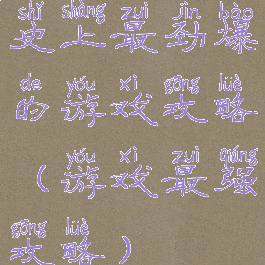 shǐ shàng zuì jìn bào
史上最劲爆
de yóu xì gōng lüè
的游戏攻略
yóu xì zuì qiáng
（游戏最强
gōng lüè
攻略）